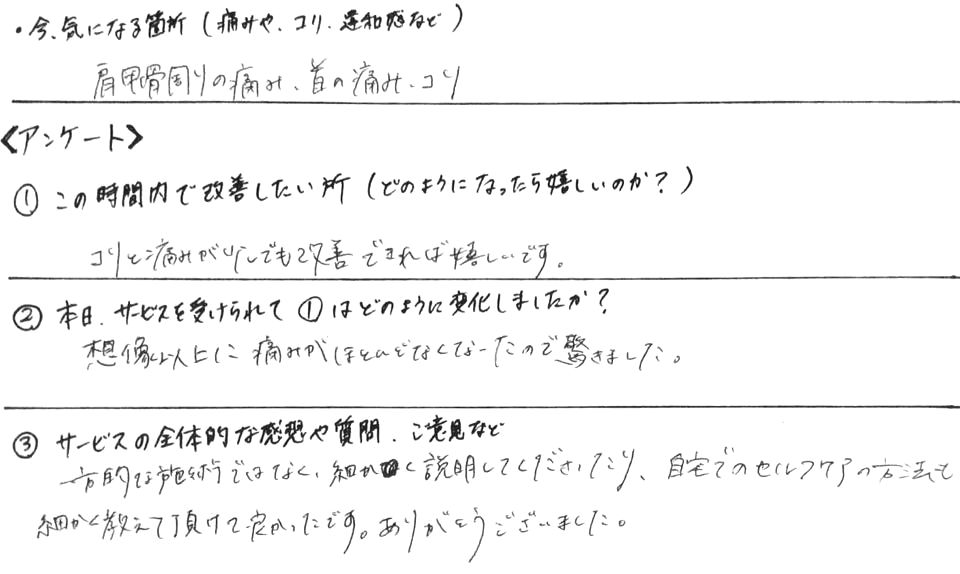 ・今、気になる箇所（痛みや、コリ、違和感など）
肩甲骨周りの痛み、首の痛み、コリ
〈アンケート〉
① この時間内で改善したい所（どのようになったら嬉しいのか？）
コリと痛みが少しでも改善できれば嬉しいです。
② 本日、サービスを受けられて①はどのように変化しましたか？
想像以上に痛みがほとんどなくなったので驚きました。
③ サービスの全体的な感想や質問、ご意見など
一方的な施術ではなく、細かく説明してくださったり、自宅でのセルフケアの方法も
細かく教えて頂けて良かったです。ありがとうございました。